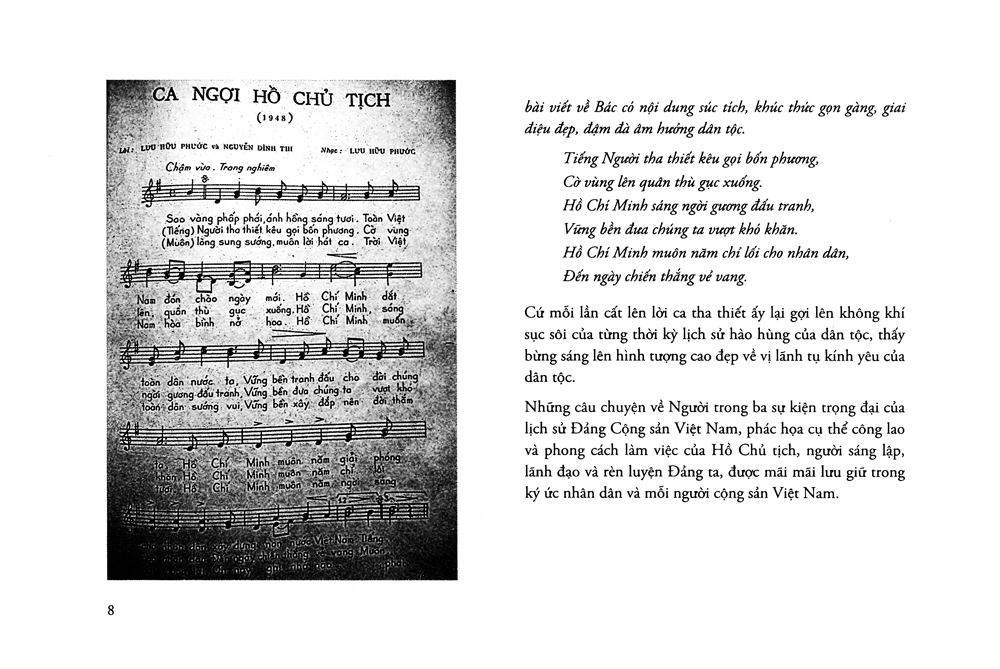 CA NGỢI HỒ CHỦ TỊCH
(1948)
Lời: LƯU HỮU PHƯỚC và NGUYỄN ĐÌNH THI Nhạc: LƯU HỮU PHƯỚC
Chậm vừa. Trang nghiêm
Sao vàng phấp phới, ánh hồng sáng tươi. Toàn Việt
(Tiếng) Người tha thiết kêu gọi bốn phương. Cờ vùng
(Muôn) lòng sung sướng, muôn lời hát ca. Trời Việt
Nam đón chào ngày mới. Hồ Chí Minh dắt
lên, quân thù gục xuống. Hồ Chí Minh, sáng
Nam hòa bình nở hoa. Hồ Chí Minh muôn
toàn dân nước ta, Vững bền tranh đấu cho đời chúng
ngời gương đấu tranh, Vững bền đưa chúng ta vượt khó
toàn dân sướng vui, Vững bền xây đắp nên đời thắm
ta. Hồ Chí Minh muôn năm giải phóng
khăn. Hồ Chí Minh muôn năm chỉ lối
tươi. Hồ Chí Minh muôn năm, ngời sáng
cho nhân dân xây dựng nước Việt Nam. Tiếng
cho nhân dân Đến ngày chiến thắng vẻ vang. Muôn
bài viết về Bác có nội dung súc tích, khúc thức gọn gàng, giai
điệu đẹp, đậm đà âm hưởng dân tộc.
Tiếng Người tha thiết kêu gọi bốn phương,
Cờ vùng lên quân thù gục xuống.
Hồ Chí Minh sáng ngời gương đấu tranh,
Vững bền đưa chúng ta vượt khó khăn.
Hồ Chí Minh muôn năm chỉ lối cho nhân dân,
Đến ngày chiến thắng vẻ vang.
Cứ mỗi lần cất lên lời ca tha thiết ấy lại gợi lên không khí
sục sôi của từng thời kỳ lịch sử hào hùng của dân tộc, thấy
bừng sáng lên hình tượng cao đẹp về vị lãnh tụ kính yêu của
dân tộc.
Những câu chuyện về Người trong ba sự kiện trọng đại của
lịch sử Đảng Cộng sản Việt Nam, phác họa cụ thể công lao
và phong cách làm việc của Hồ Chủ tịch, người sáng lập,
lãnh đạo và rèn luyện Đảng ta, được mãi mãi lưu giữ trong
ký ức nhân dân và mỗi người cộng sản Việt Nam.
8